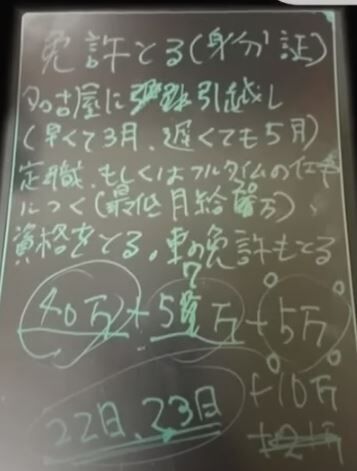 免許とる(身分証)
名古屋に引越し
(早くて3月、遅くても5月)
定職、もしくはフルタイムの仕事
につく(最低月給 万)
資格をとる。車の免許もとる
40万+5 万+5万
7
+10万
22日、23日